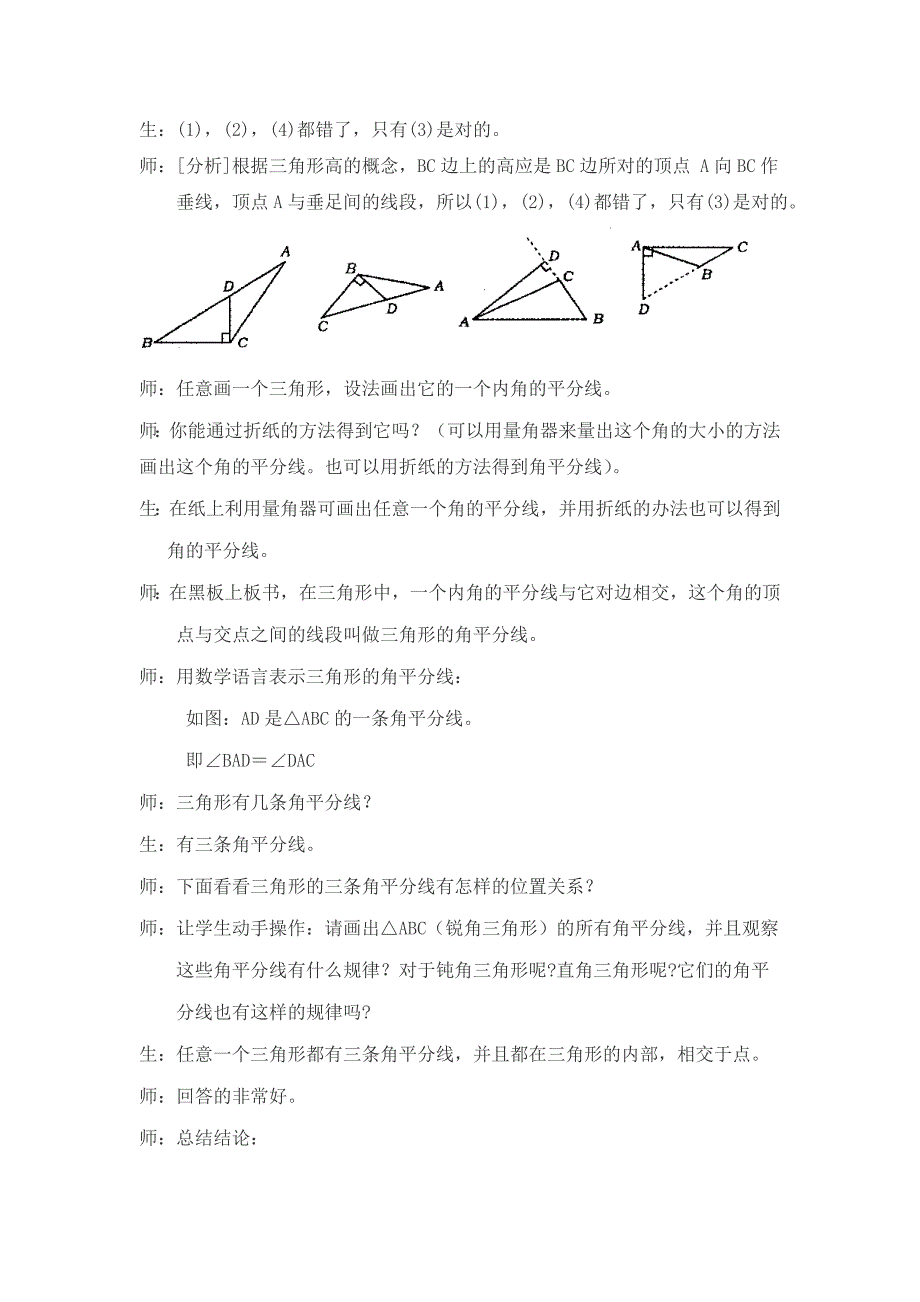 生：(1)，(2)，(4)都错了，只有(3)是对的。
师：[分析]根据三角形高的概念，BC边上的高应是BC边所对的顶点 A向BC作
垂线，顶点A与垂足间的线段，所以(1)，(2)，(4)都错了，只有(3)是对的。
A
D
B
C
B
A
D
C
D
C
A
B
A
C
B
D
师：任意画一个三角形，设法画出它的一个内角的平分线。
师：你能通过折纸的方法得到它吗？（可以用量角器来量出这个角的大小的方法
画出这个角的平分线。也可以用折纸的方法得到角平分线）。
生：在纸上利用量角器可画出任意一个角的平分线，并用折纸的办法也可以得到
角的平分线。
师：在黑板上板书，在三角形中，一个内角的平分线与它对边相交，这个角的顶
点与交点之间的线段叫做三角形的角平分线。
师：用数学语言表示三角形的角平分线：
如图：AD是△ABC的一条角平分线。
即∠BAD＝∠DAC
师：三角形有几条角平分线？
生：有三条角平分线。
师：下面看看三角形的三条角平分线有怎样的位置关系？
师：让学生动手操作：请画出△ABC（锐角三角形）的所有角平分线，并且观察
这些角平分线有什么规律？对于钝角三角形呢?直角三角形呢?它们的角平
分线也有这样的规律吗?
生：任意一个三角形都有三条角平分线，并且都在三角形的内部，相交于点。
师：回答的非常好。
师：总结结论：